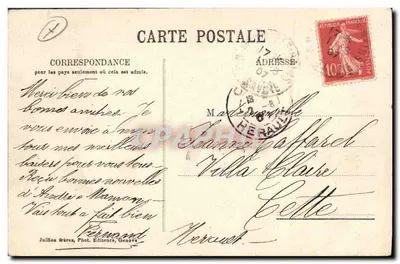 CARTE POSTALE
CORRESPONDANCE
pour les pays seulement où cela est admis.
ADRESSE
Merci bien de vos
bonnes amitiés. Je
vous envoie à
tous mes meilleurs
baisers pour vous tous.
Reçu bonnes nouvelles
d'André & Maman.
Vais tout à fait bien
Fernand
Mademoiselle
Jeanne Jaffard
Villa Claire
Cette
Herault
17
07
SAVOIE
HERAULT
10
Jullien frères, Phot. Editeurs, Genève